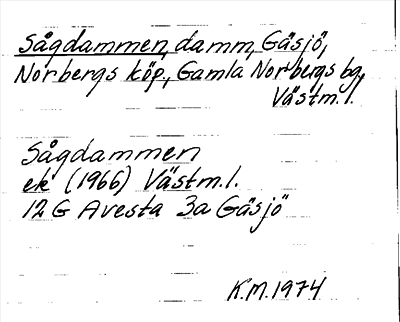 Sågdammen, damm, Gäsjö,
Norbergs köp., Gamla Norbergs bg,
Västm. l.
Sågdammen
ek (1966) Västm. l.
12 G Avesta 3a Gäsjö
K.M. 1974